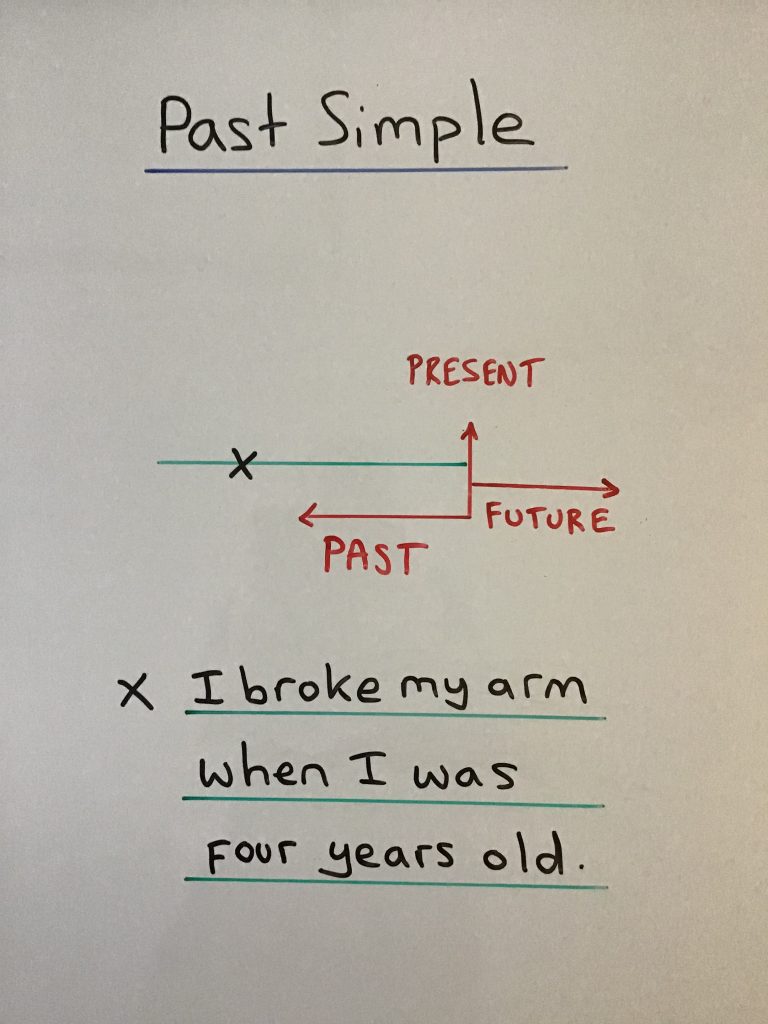 Past Simple
PRESENT
X
FUTURE
PAST
X I broke my arm
when I was
four years old.